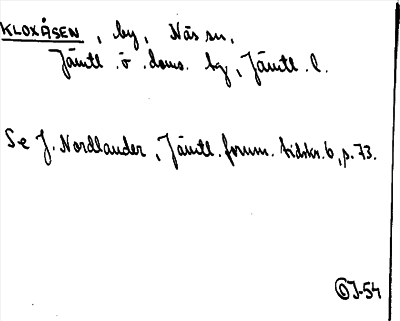 KLOXÅSEN, by, Näs sn,
Jämtl. ö. doms. bg, Jämtl. l.
Se J. Nordlander, Jämtl. fornm. tidskr. 6, s. 73.
J-54